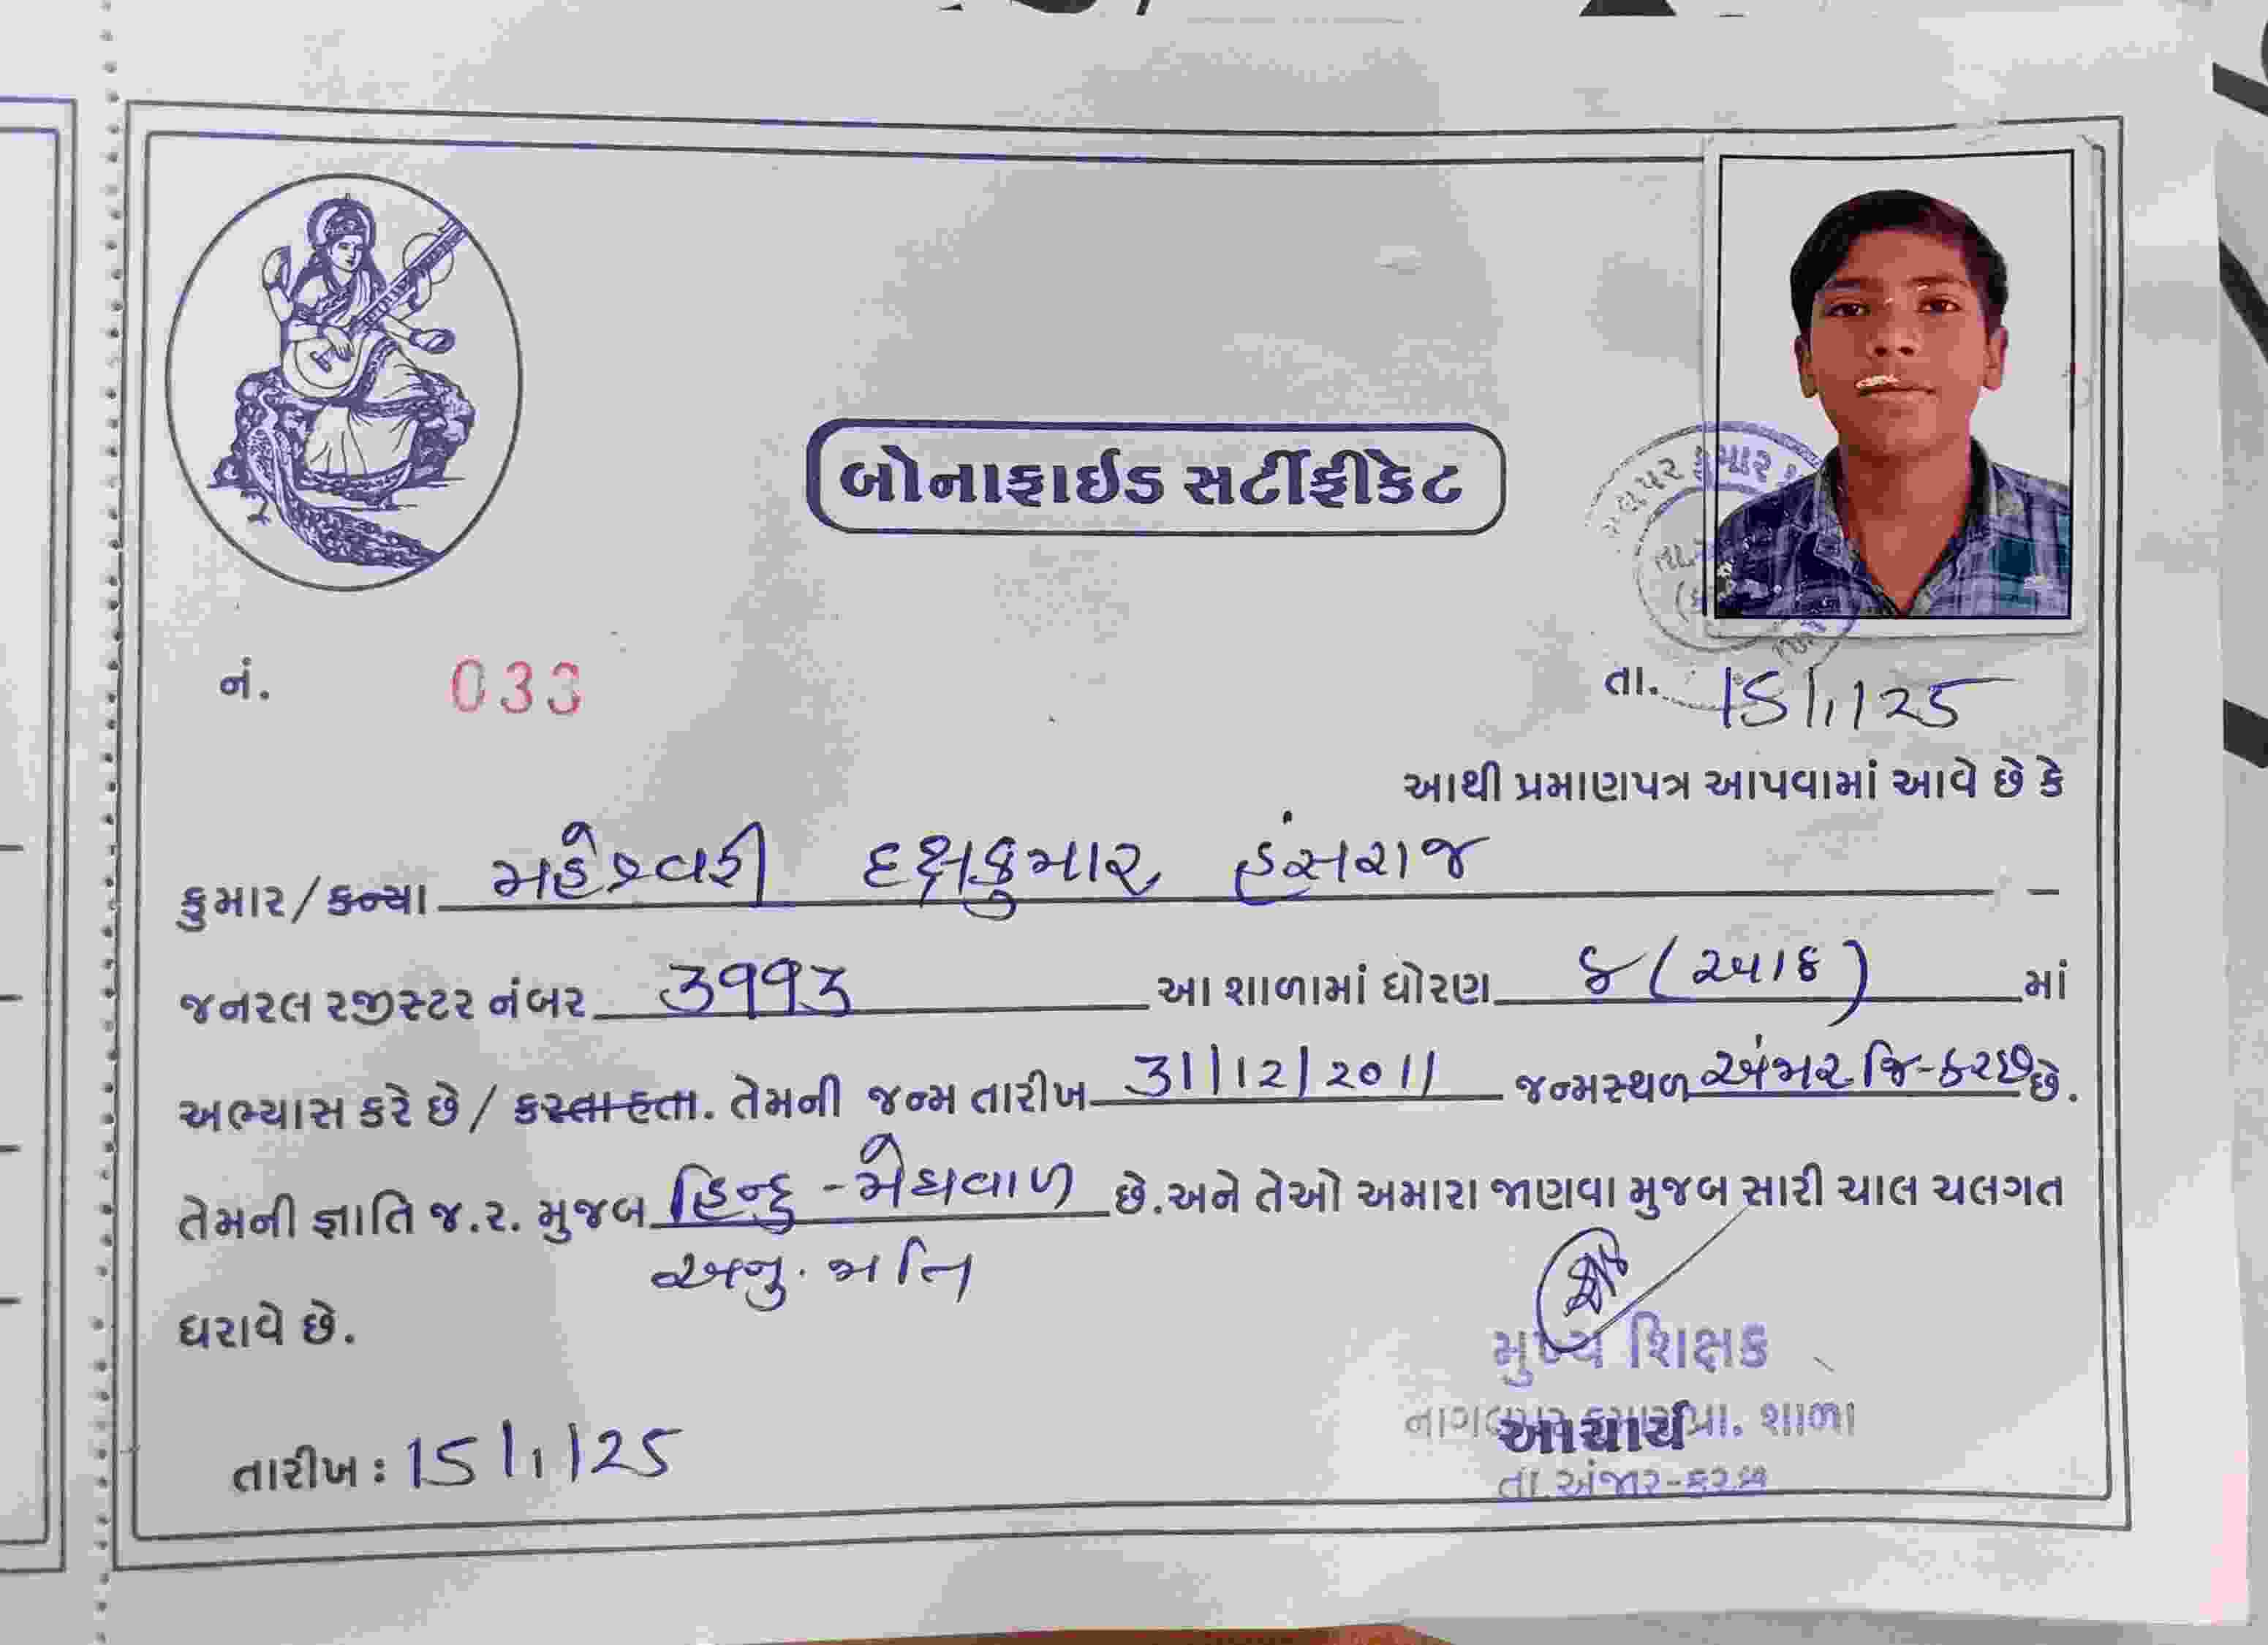 બોનાફાઇડ સર્ટીફીકેટ
નં. 033
તા. 15/1/25
આથી પ્રમાણપત્ર આપવામાં આવે છે કે
કુમાર/કન્યા મહેશ્વરી દક્ષકુમાર હંસરાજ
જનરલ રજીસ્ટર નંબર ૩૧૧૩ આ શાળામાં ધોરણ ૮ (આઠ) માં
અભ્યાસ કરે છે / કરતા હતા. તેમની જન્મ તારીખ 31/12/2011 જન્મસ્થળ અંજાર જિ-કચ્છ છે.
તેમની જ્ઞાતિ જ.ર. મુજબ હિન્દુ - મેઘવાળ છે. અને તેઓ અમારા જાણવા મુજબ સારી ચાલ ચલગત
અનુ. જાતિ
ધરાવે છે.
મુખ્ય શિક્ષક
નાગલપર કુમાર પ્રા. શાળા
આચાર્ય
તા. અંજાર-કચ્છ
તારીખ : 15/1/25